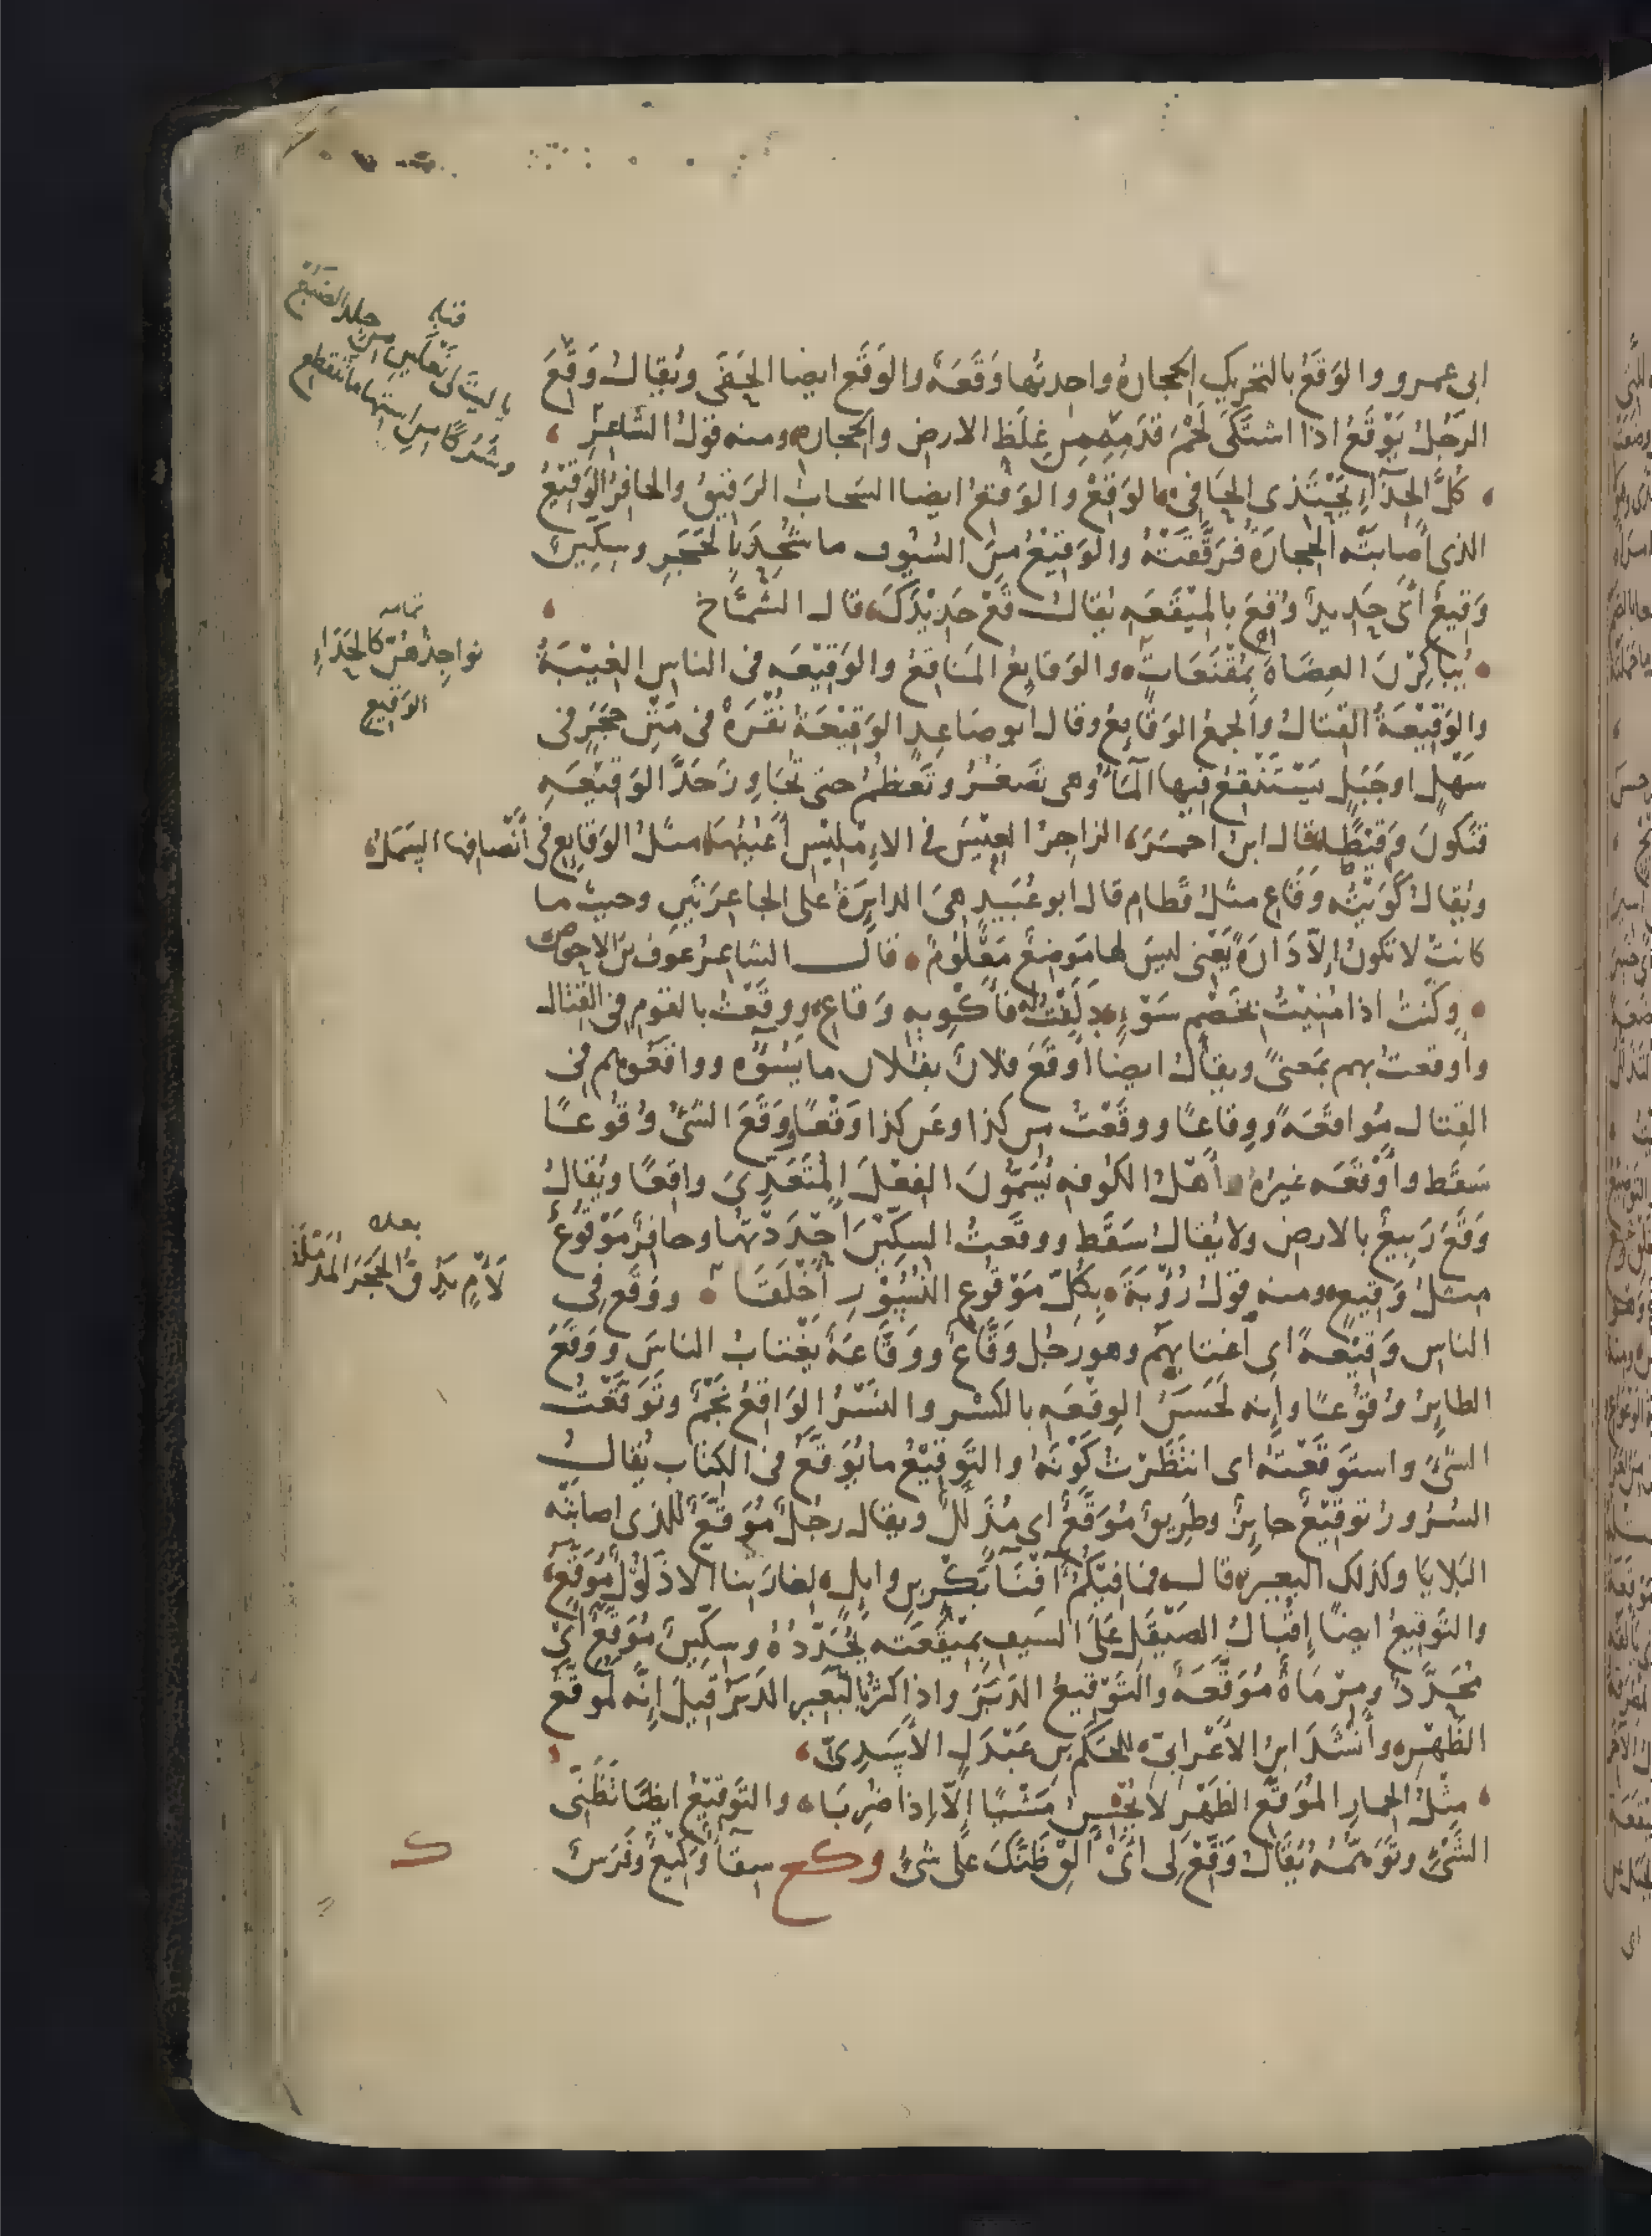 ابى عمرو والوَقَعُ بالتحريك الحجارةُ واحدتُها وَقَعَةٌ والوَقَعُ ايضا الحَفَى ويُقالُ وَقِعَ
الرَّجُلُ يَوْقَعُ اذا اشتَكَى لَحْمَ قَدَمِهِ مِن غِلَظِ الارض والحجاره ومنه قولُ الشاعِرِ
كُلَّ الحِذَاءِ يَحْتَذى الحَافِى الوَقِعْ والوَقْعُ ايضا السَحابُ الرَقيقُ والحافِرُ الوَقِيْعُ
الذى أصابتْه الحِجارَةُ فرَقَّقَتْهُ والوَقِيْعُ مِنَ السُيُوف ما شُحِذَ بالحَجَرِ وسِكِّينٌ
وَقِيعٌ اىْ حَدِيدٌ وُقِعَ بالمِيْقَعَهِ يُقالُ قَعْ حَدِيْدَكَ قال الشَّمَّاخ
يُبَاكِرْنَ العِضَاهَ بِمُقْنَعَاتٍ والوَقايعُ المَناقِعُ والوَقِيْعَه فى الناس الغِيْبَةُ
والوَقِيْعَةُ القِتالُ والجمعُ الوَقَايِعُ وقال ابو صاعِدٍ الوَقِيْعَةُ نُقْرَةٌ فى مَتْنِ حَجَرٍ فى
سَهْلٍ او جَبَلٍ يَسْتَنْقِعُ فيها المَاءُ وهى تَصغُرُ وتَعظُمُ حتى تُجَاوِزَ حَدَّ الوَقِيْعَهِ
فتكونَ وَقِيْطًا قال ابن احمَرَ الزاجرُ العِيْسَ فى الاِمْلِيْسِ أَعْيُنُهَا مثلُ الوَقايِعِ فى أنْصافِها السَمَلُ
ويُقالُ كَوَيْتُه وَقَاعِ مثلُ قَطامِ قال ابو عُبَيدٍ هىَ الدايرَةُ على الجاعِرَتَينِ وحيثُ ما
كانتْ لا تكونُ اِلّا دَارَةً يَعْنى ليسَ لها مَوضِعٌ مَعْلُومٌ قال الشاعرُ عوف بن الاحوص
وكنتُ اذا مُنِيْتُ بخَصْمِ سَوْءٍ دَلَفْتُ له فأَكْوِيهِ وَقاعِ ووقَعْتُ بالقوم فى القتال
وأوقعتُ بهم بمَعنىً ويقالُ ايضا أوقَعَ فلانٌ بفلان ما يَسُوؤُه وواقعُوهم فى
القِتال مُواقَعَةً ووِقاعًا ووقَعْتُ من كذا وعَن كذا وَقْعًا ووَقَعَ الشَىْءُ وُقُوعًا
سَقَط وأوْقَعَه غيرُهُ وأهْلُ الكوفه يُسَمُّونَ الفِعْلَ المُتَعَدِّىَ واقِعًا ويُقالُ
وَقَعَ رَبِيعٌ بالارض ولا يُقالُ سَقَط ووقَعتُ السِكِّيْنَ أحْدَدْتُها وحافِرٌ مَوْقُوعٌ
مثلُ وَقِيعٍ ومنه قولُ رُؤْبَةَ بِكُلِّ مَوْقُوعِ النُسُوْرِ أَخْلَقَا ووَقَعَ فى
الناس وَقِيْعةً اى اغتابهم وهو رجُل وَقَّاعٌ ووَقَّاعَةٌ يَغتابُ الناسَ ووَقَعَ
الطايِرُ وُقُوْعًا واِنه لَحَسَنُ الوِقعَه بالكسْر والنَسْرُ الوَاقِعُ نَجْمٌ وتَوَقَّعْتُ
الشىْءَ واستَوقَعْتُه اى انتَظَرْتُ كَوْنَهُ والتَوقِيْعُ ما يُوَقَّعُ فى الكتاب يُقالُ
السُرُورُ توقِيْعٌ جايزٌ وطَرِيقٌ مُوَقَّعٌ اى مُذَلَّلٌ ويقال رجُلٌ مُوَقَّعٌ للذى اصابتْه
البَلايا وكذلك البَعيرُ قال فما فِيكُمُ أفْنَاءَ بَكْرِ بن وايلٍ لِغارَتِنا الا ذَلُوْلٌ مُوَقَّعٌ
والتَوقِيعُ ايضًا إقبالُ الصَيْقَلِ عَلَى السَيفِ بمِيْقَعَتِه يُحَدِّدُهُ وسِكِّينٌ مُوَقَّعٌ اىْ
مُحَدَّدٌ ومِرْمَاةٌ مُوَقَّعَةٌ والتَوْقِيعُ الدَبَرُ واذا كثُرَ بالبَعِيرِ الدَبَرُ قِيلَ اِنَّه لَمُوَقَّعُ
الظَهْرِ وأنْشَدَ ابنُ الأعْرابىّ للحَكَمِ بن عَبْدَلٍ الأسَدِىّ
مِثْلَ الحِمارِ المُوَقَّعِ الظَهْرِ لا يُحْسِنُ مَشْيًا اِلّا اِذا ضُرِبَا والتَوقِيْعُ ايضًا تَظَنِّى
الشَىْءِ وتوَهُّمُه يُقالُ وَقِّعْ اى أَلْقِ ظَنَّكَ عَلَى شىْءٍ وكع سِقاءٌ وَكِيْعٌ وفَرَسٌ
يا ليتَ لى نَعْلَينِ من جِلدِ الضَبُعْ
وشُرُكًا مِن استِها لا تَنقطع
تمامه
نواجِذُهُنّ كالحِدَاءِ
الوَقيع
بعده
لَأْمٍ يَدُقُّ الحَجَرَ المُدَمْلَقَا